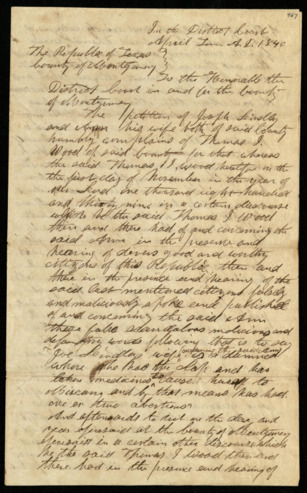 In the District Court
April Term A.D. 1840
The Republic of Texas
County of Montgomery
To the Honorable the
District Court in and for the County
of Montgomery
The Petition of Joseph Lindley
and his wife both of said County
humbly complains of Thomas J.
Wood of said County for that whereas
the said Thomas J. Wood heretofore on the
the first day of November in the year of
our Lord one thousand eight hundred
and thirty nine in a certain discourse
which he the said Thomas J. Wood
then and there had of and concerning the
said Ann in the presence and
hearing of divers good and worthy
citizens of this Republic then and
there in the presence and hearing of the
said last mentioned citizens falsely
and maliciously spoke and published
of and concerning the said Ann
these false slanderous malicious and
defamatory words following that is to say
"Joe Lindley's wife is a damned
whore she had the clap and has
taken medicine to
and by that means has had
one or three abortions
And afterwards to wit on the day and
year aforesaid at the County of Montgomery
aforesaid in a certain other discourse which
he the said Thomas J. Wood then and
there had in the presence and hearing of